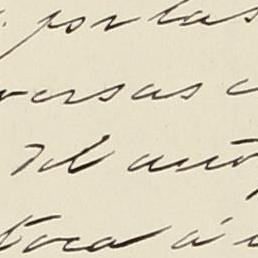 por las
versas
del autó
toca á